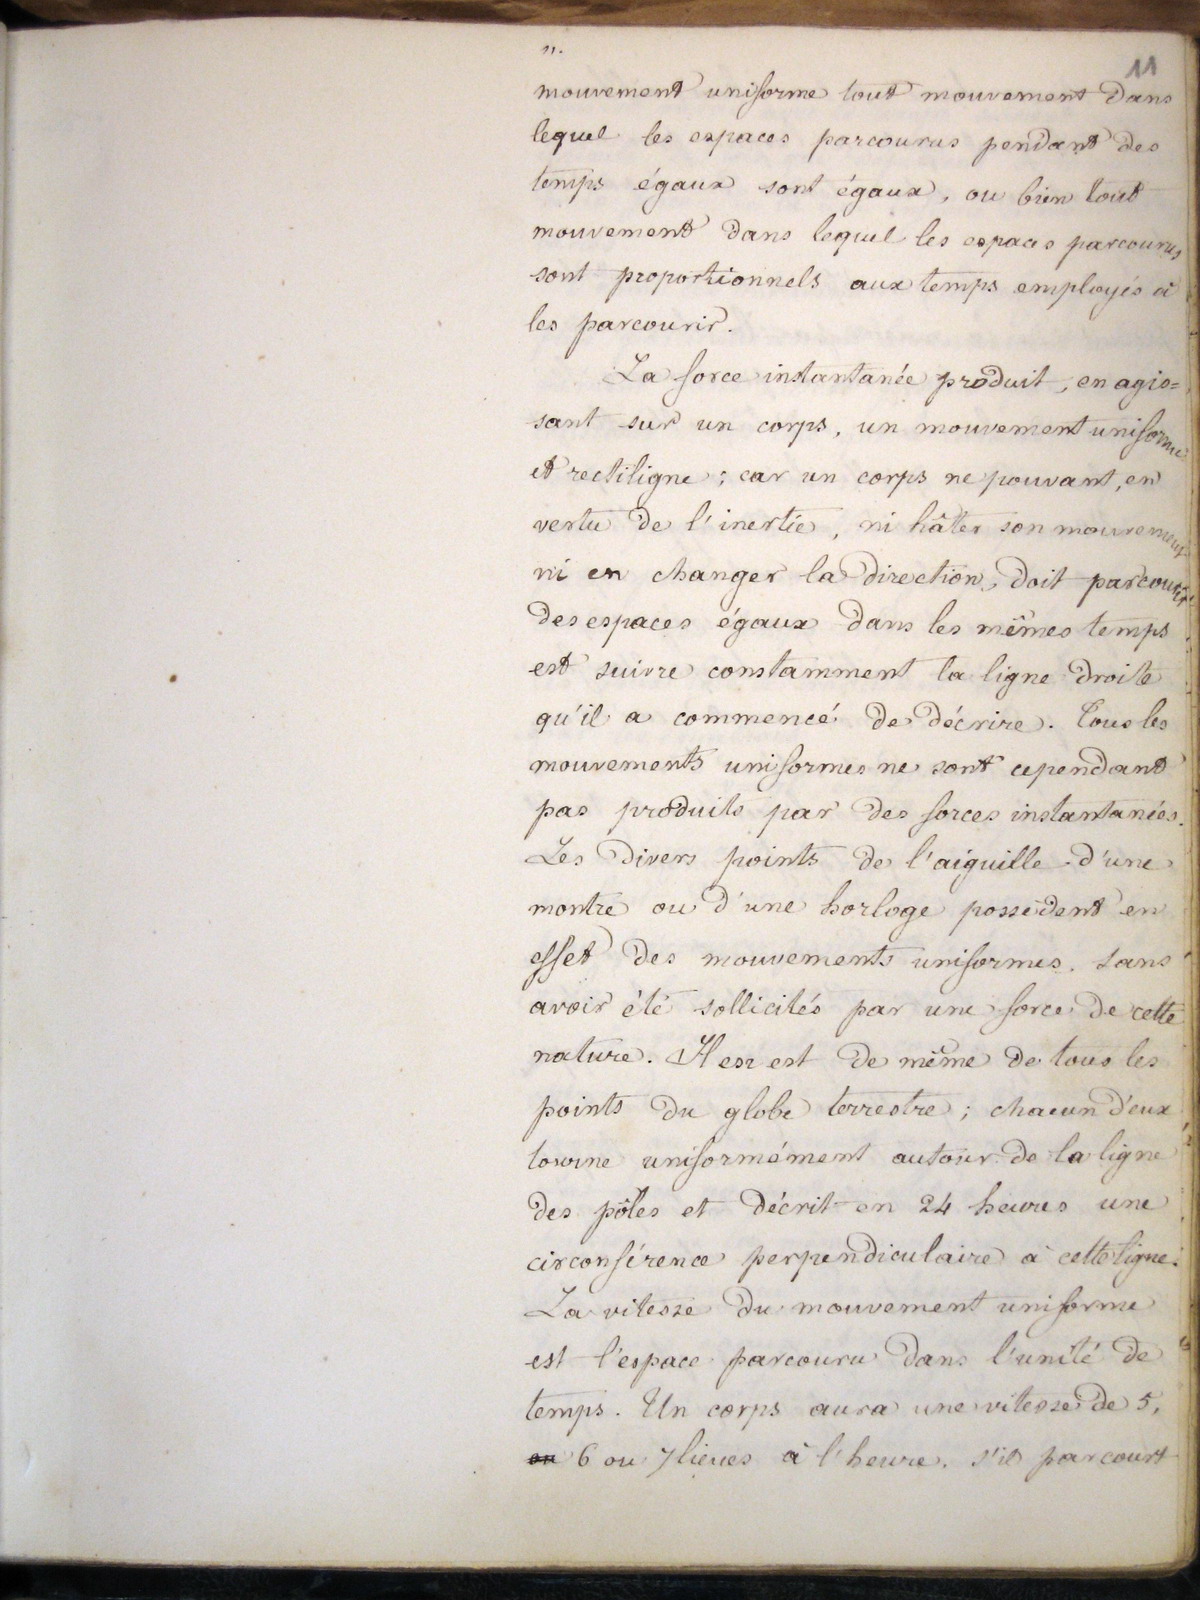 11.
11
mouvement uniforme tout mouvement dans
lequel les espaces parcourus pendant des
temps égaux sont égaux, ou bien tout
mouvement dans lequel les espaces parcourus
sont proportionnels aux temps employés à
les parcourir.
La force instantanée produit, en agis=
sant sur un corps, un mouvement uniforme
et rectiligne ; car un corps ne pouvant, en
vertu de l'inertie, ni hâter son mouvement
ni en changer la direction, doit parcourir
des espaces égaux dans les mêmes temps
est suivre constamment la ligne droite
qu'il a commencé de décrire. Tous les
mouvements uniformes ne sont cependant
pas produits par des forces instantanées.
Les divers points de l'aiguille d'une
montre ou d'une horloge possèdent en
effet des mouvements uniformes, sans
avoir été sollicités par une force de cette
nature. Il en est de même de tous les
points du globe terrestre ; chacun d'eux
tourne uniformément autour de la ligne
des pôles et décrit en 24 heures une
circonférence perpendiculaire à cette ligne.
La vitesse du mouvement uniforme
est l'espace parcouru dans l'unité de
temps. Un corps aura une vitesse de 5,
ou 6 ou 7 lieues à l'heure, s'il parcourt